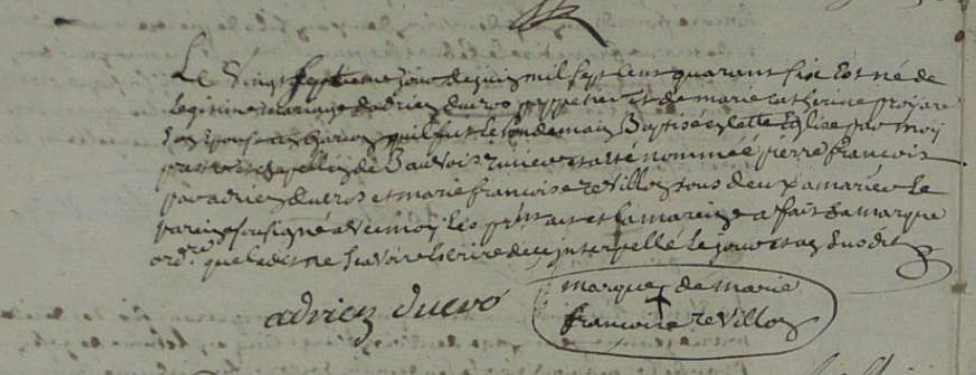 Le Vingt septieme jour de juin mil sept cent quarant six Est né de
legitime mariage d'adrien ducro et de marie catherine
son Epouse un Garçon qui fut le lendemain Baptisé en cette Eglise par moy
de Bauvois a esté nommé pierre francois
par adrien ducro et marie francoise reVillon tous deux a marier le
parein sousigné avec moy les pnt act et la mareine a fait sa marque
ordre quelle a dit ne scavoir Escrire de ce interpellé le jour et an susdit
adrien ducro
marque de marie
francoise reVillon